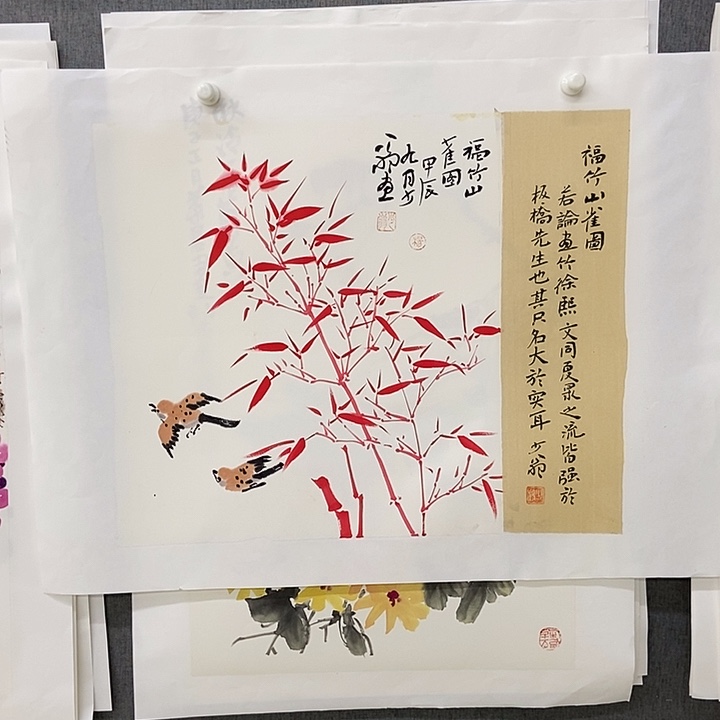 福竹山
雀图
甲辰
九月少
翁画
福竹山雀圖
若論画竹徐熙文同夏㫤之流皆强於
板橋先生也其只名大於实耳 少翁